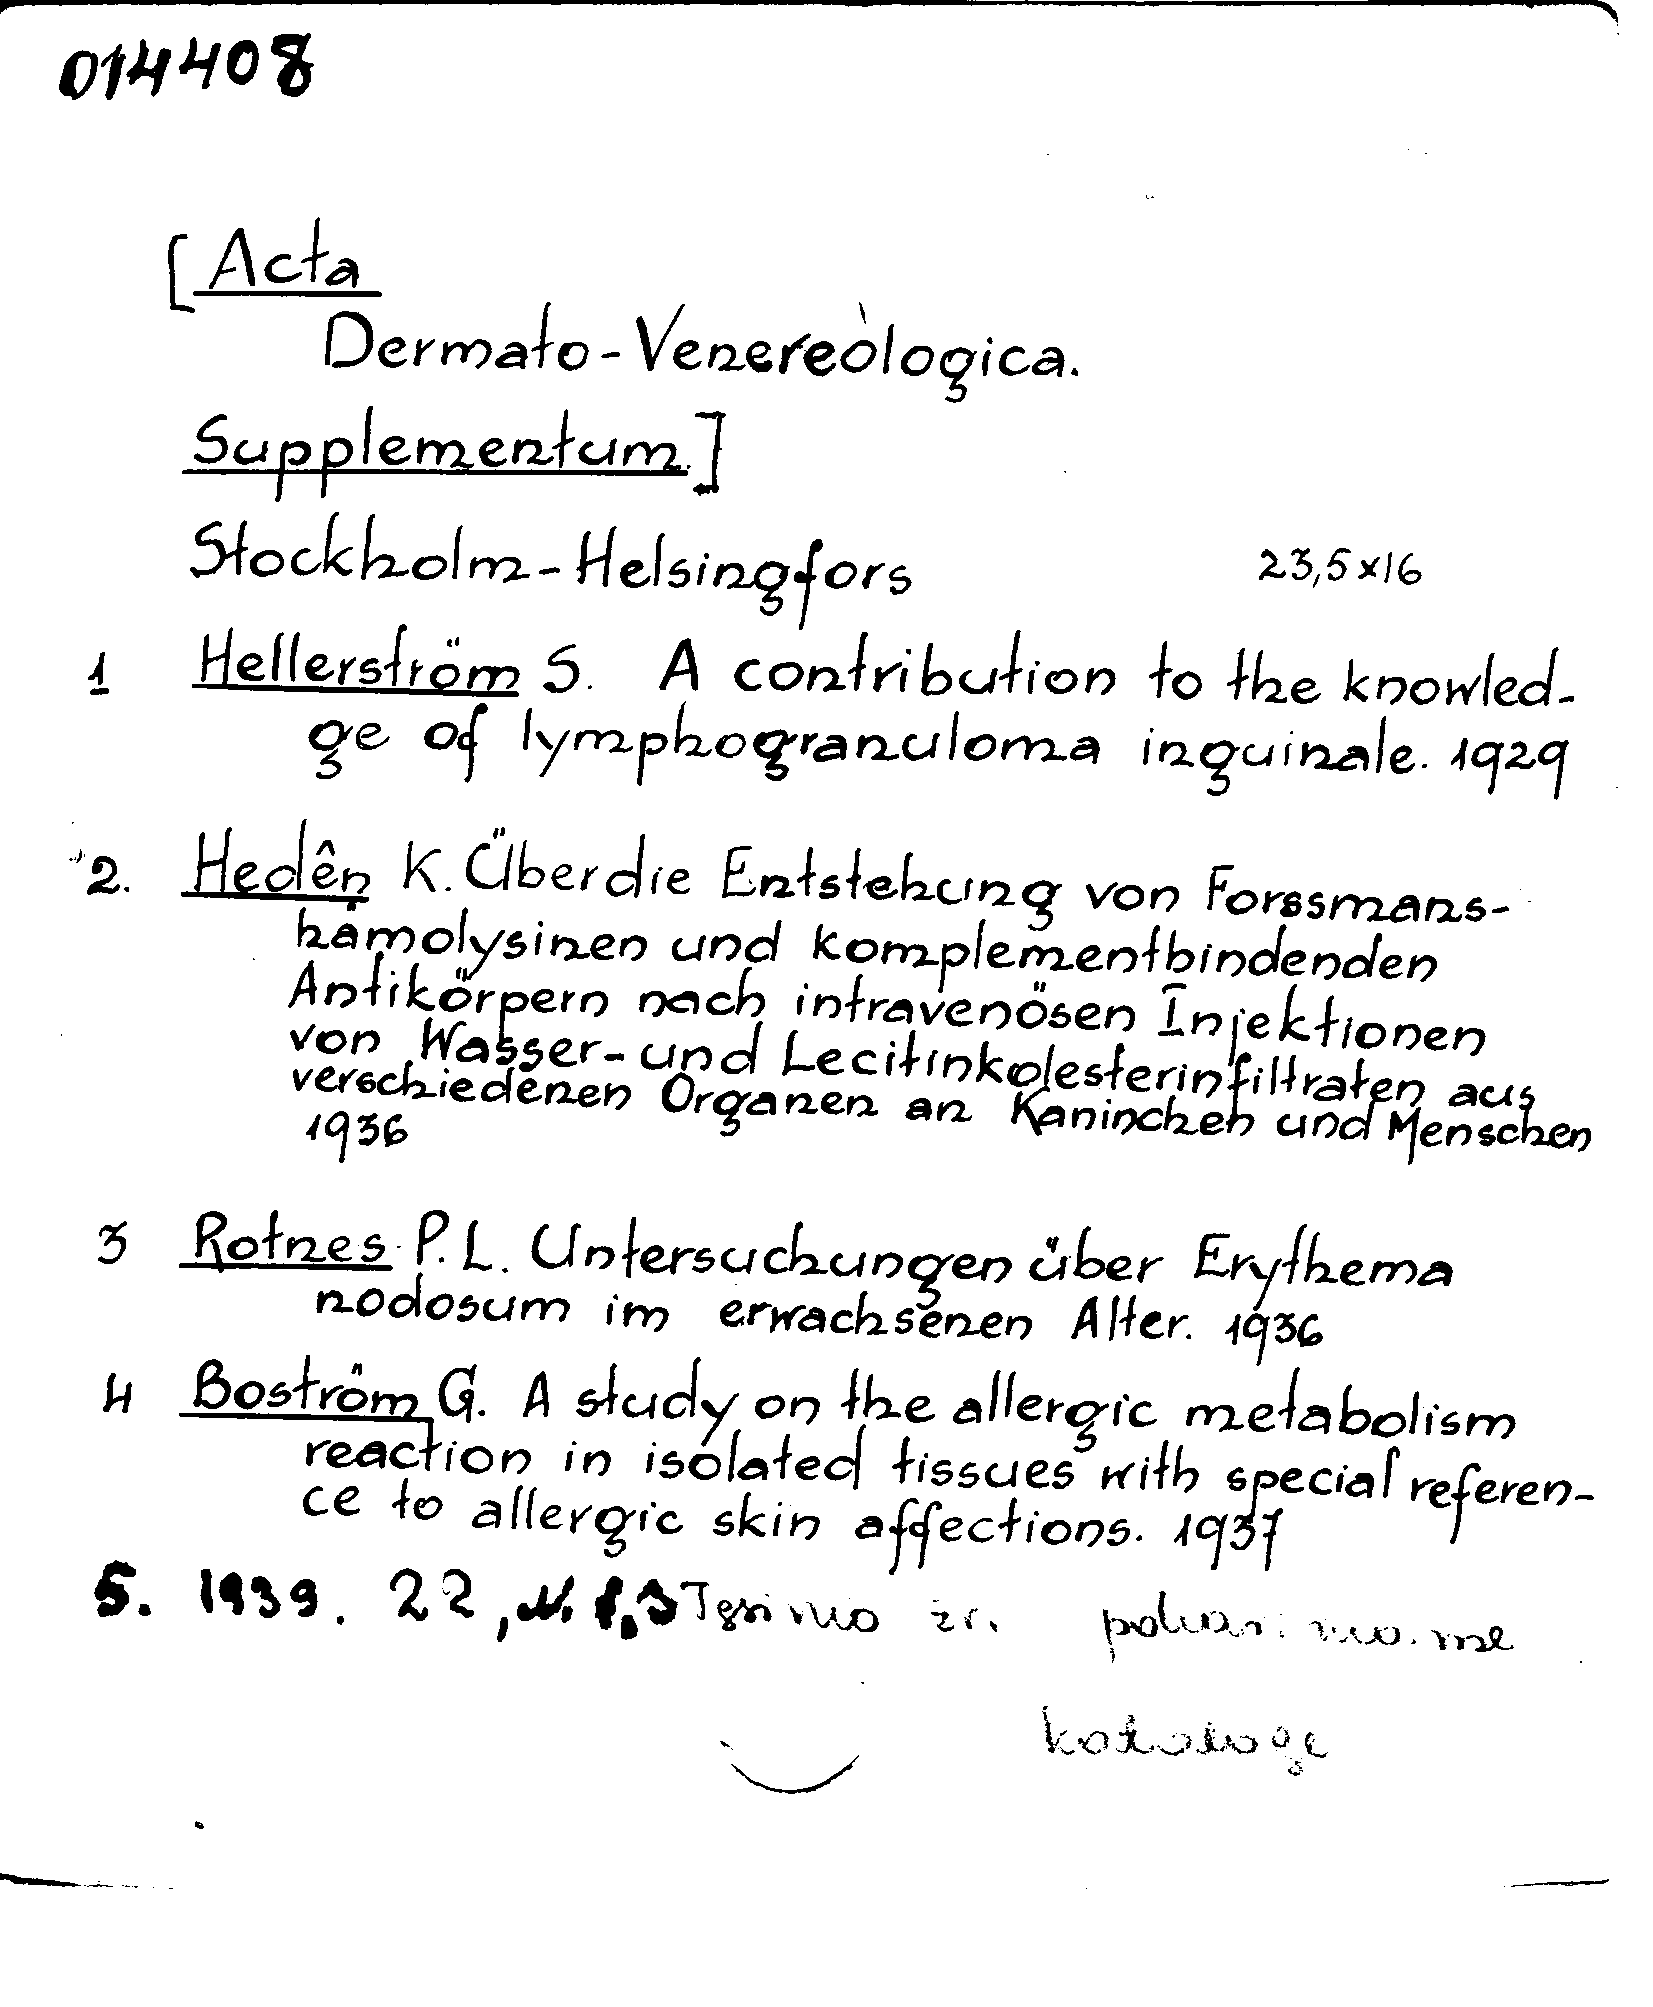 014408
[Acta
Dermato-Venereologica.
Supplementum.]
Stockholm-Helsingfors 23,5x16
1 Hellerström S. A contribution to the knowled-
ge of lymphogranuloma inguinale. 1929
2. Hedên K. Über die Entstehung von Forssmans-
hämolysinen und komplementbindenden
Antikörpern nach intravenösen Injektionen
von Wasser- und Lecitinkolesterinfiltraten aus
verschiedenen Organen an Kaninchen und Menschen
1936
3 Rotnes P.L. Untersuchungen über Erythema
nodosum im erwachsenen Alter. 1936
4 Boström G. A study on the allergic metabolism
reaction in isolated tissues with special referen-
ce to allergic skin affections. 1937
5. 1939. 22, N. 1,3 Tęsinio žr.
kataloge